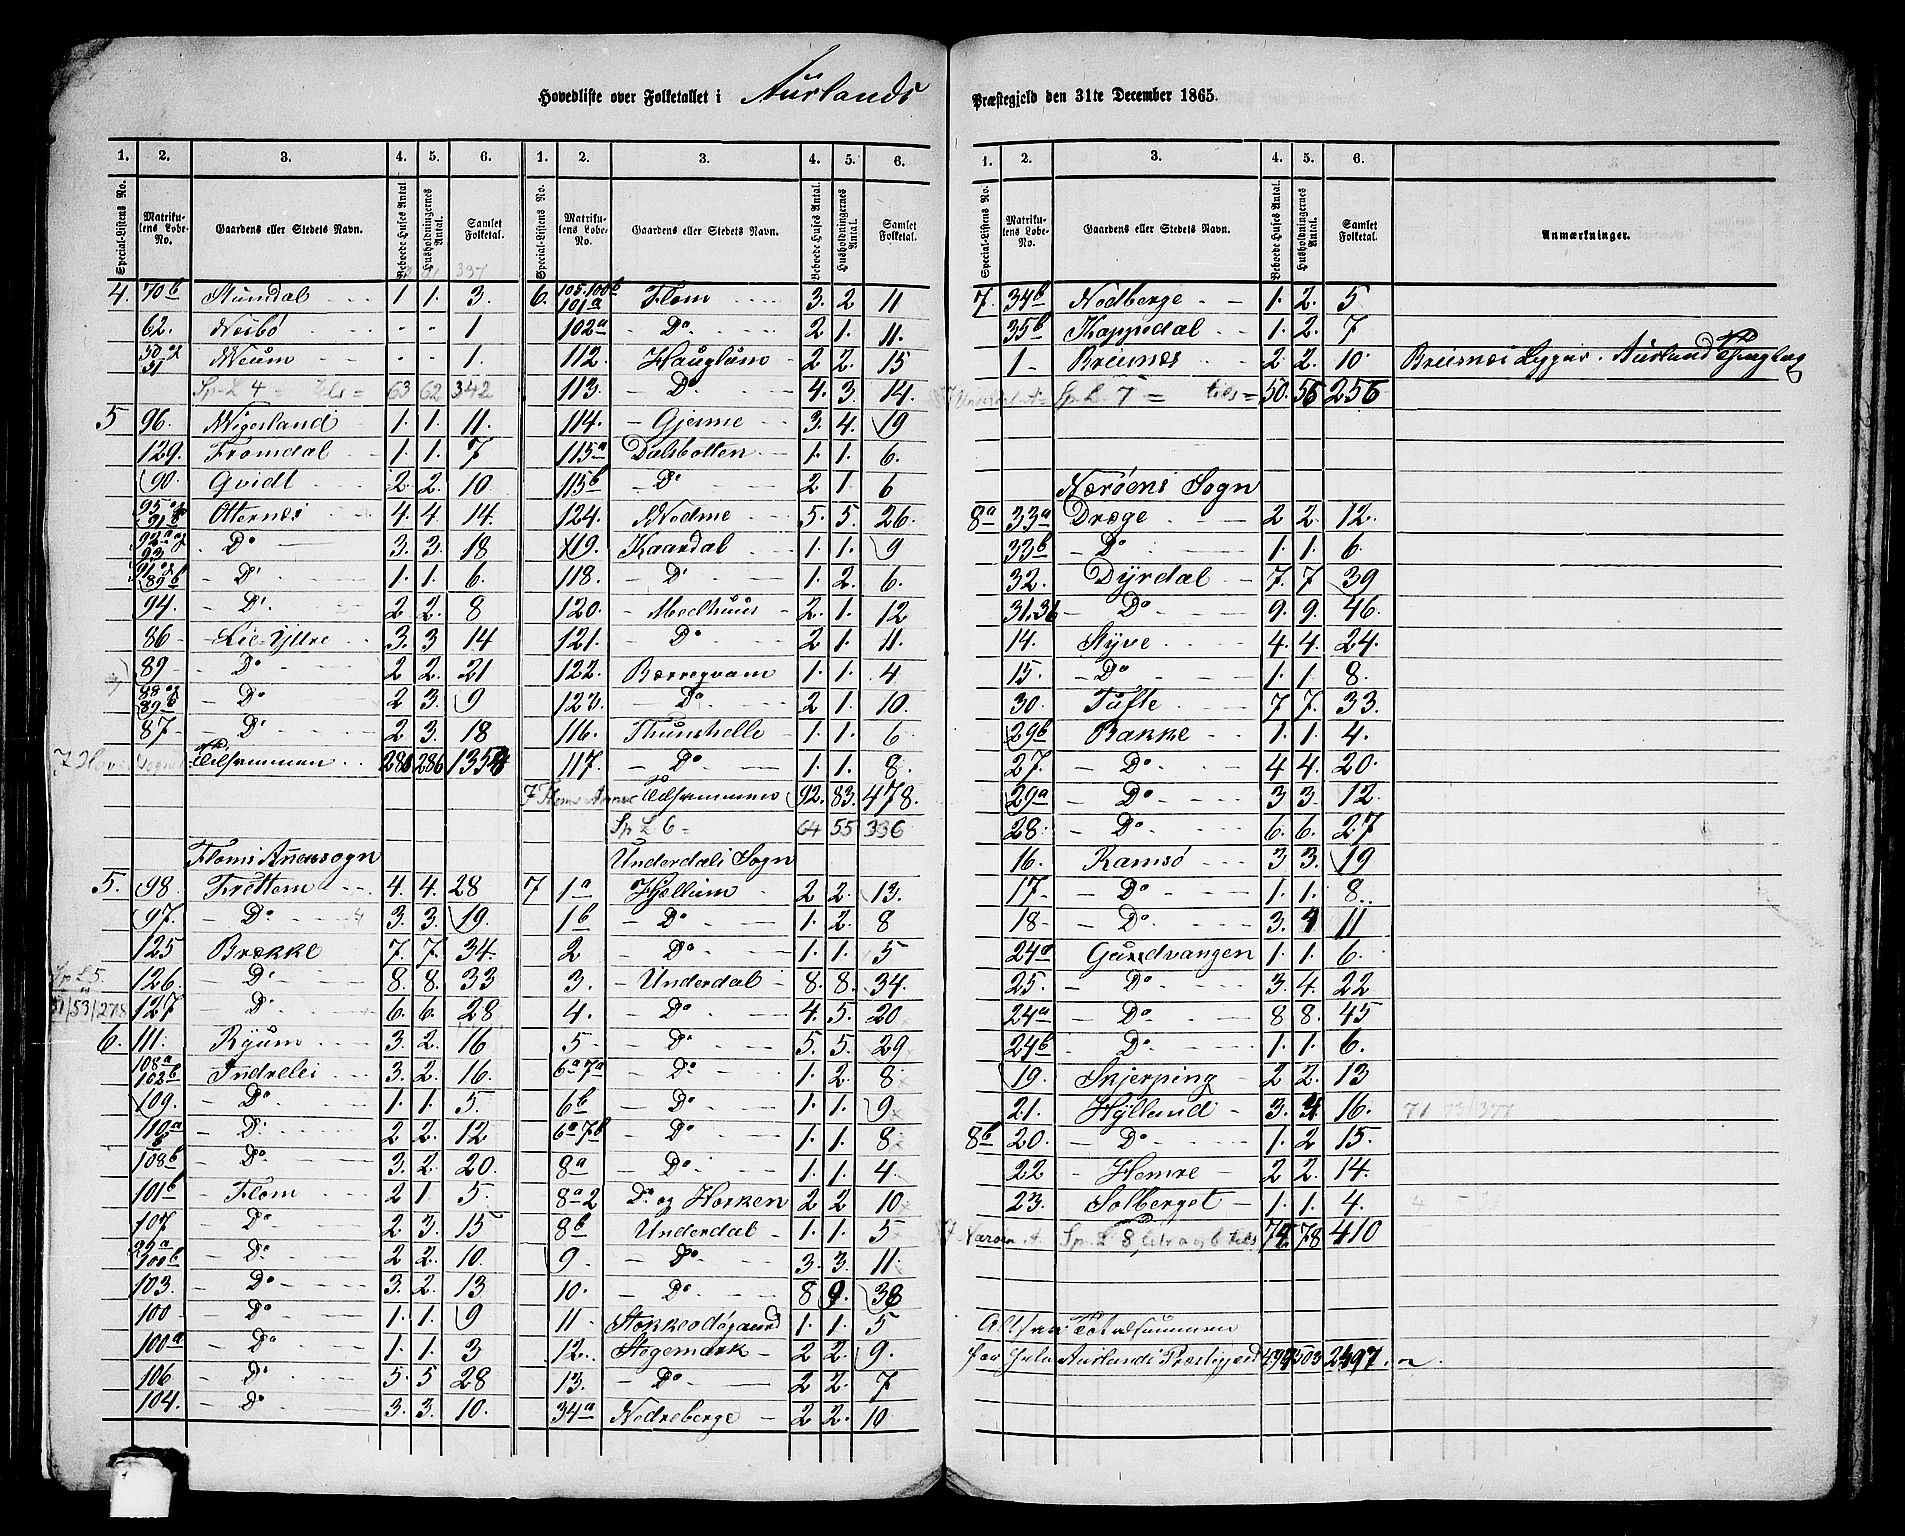 Hovedliste over Folketallet i Aurlands
Præstegjeld den 31te December 1865.
1. 2. 3. 4. 5. 6. 1. 2. 3. 4. 5. 6.
Special-Listens No. Matrikulens Løbe-No. Gaardens eller Stedets Navn. Beboede Huses Antal. Husholdningernes Antal. Samlet Folketal. Special-Listens No. Matrikulens Løbe-No. Gaardens eller Stedets Navn. Beboede Huses Antal. Husholdningernes Antal. Samlet Folketal.
337
4. 70b Stundal 1 1. 3.
62. Neibø - - 1
50 og 51 Neum - - 1.
Sp. L 4 = tils = 63 62 342
5 96. Nigesland 1. 1. 11.
129. Fromdal 1. 1. 7
90. Gvidt 2. 2. 10
95 og 91b Otternes 4. 4. 14.
92a og 93 Do 3. 3. 18
91 og 89b Do 1. 1. 6.
94. Do 2 2. 8
86 Lie-Yttre 3. 3 14
89 Do 2 2. 21
88 og 89b Do 2 3. 9
87. Do 2 3. 18
Tilsammen 286 286 1358
Floms Annexsogn
5. 98. Frettem 4. 4. 28
97. Do 3. 3. 19.
125 Brekke 7. 7. 34.
Sp L 5.
126. Do 8. 8. 33
51/53/278
127 Do 6. 6. 28
6. 111. Ryum 3. 2. 16
108a 102b Indrelei 3. 2. 16.
109. Do 1. 1. 5.
110a Do 2 2. 12
108b Do 3. 2. 20.
101b Flom 2 1. 5.
107 Do 2. 3. 15
99a 100b Do 2 2 10.
103. Do 3. 2. 13
100 Do 1. 1. 9
100a Do 1. 1. 3
106 Do 5. 5 28
104. Do 3. 3. 10.
6. 105. 100b 101a Flom 3. 2 11
102a Do 2 1. 11.
112. Hauglum 2 2. 15
113. Do 4. 3. 14.
114. Gjerme 3. 4. 19
115a Dalsbotten 1. 1. 6.
115b Do 2 1 6
124. Nedme 5. 5. 26.
119. Kaardal 1. 1. 9
118. Do 1. 2. 6.
120. Melhuus 2. 1. 12
121. Do 2 1. 11.
122. Berreqvam 1. 1. 4
123. Do 2 1. 10.
116. Thunshelle 1. 1. 6
117. Do 1. 1. 8.
Tilsammen 92. 83. 478.
Sp L 6 = 64 55 336
Underdals Sogn
7 1a Hjellum 2 2. 13.
1b Do 1. 2 8
2 Do 1. 1. 5
3. Underdal 8. 8. 34.
4. Do 4. 5. 20
5 Do 5. 5. 29
6a 7a Do 1. 2 8
6b Do 1. 1. 9
6a 7b Do 1. 1. 8
8a Do 1. 1. 4
8a-2 Do og Horken 2 2 10
8b Underdal 1. 1. 5
9 Do 3. 3. 11.
10. Do 8 9. 38
11 Stokkeødegaard 1. 1. 5
12. Stegemark 2 2. 9.
13. Do 2 2. 7
34a Nedreberge 2 2. 10
1. 2. 3. 4. 5. 6.
Special-Listens No. Matrikulens Løbe-No. Gaardens eller Stedets Navn. Beboede Huses Antal. Husholdningernes Antal. Samlet Folketal. Anmærkninger.
7. 34b Nedberge 1. 2. 5
35b Kappedal 1. 2. 7
1 Breisnæs 2 2. 10 Breisnæs Ligger i Aurlands Thinglag
Sp. L 7 = tils = 50. 56 256
Nærøens Sogn
8a 33a Drege 2 2. 12.
33b Do 1. 1. 6.
32. Dyrdal 7. 7 39
31. 36 Do 9. 9. 46.
14. Styve 4. 4. 24.
15. Do 1. 1. 8.
30. Tufte 7 7. 33.
29b Bakke 1. 1. 4.
27. Do 4 4. 20.
29a Do 3 3. 12.
28. Do 6. 6. 27
16. Ramsø 3 3. 19
17. Do 1. 1. 8.
18 Do 3. 4 11
24a Gudvangen 1. 1. 6.
25. Do 3 4. 22
24a Do 8 8. 45
24b Do 1. 1. 6.
19. Skjerping 2 2. 13
21. Hylland 3. 4. 16. 71 73/377
8b 20. Do 1. 2 15.
22 Hemre 2 2. 14.
23. Solberget 1. 1. 4.
Sp. L 8 a og b tils 74. 78 410
Altsaa Totalsummen
for hele Aurlands Præstegjeld 499 503 2497.